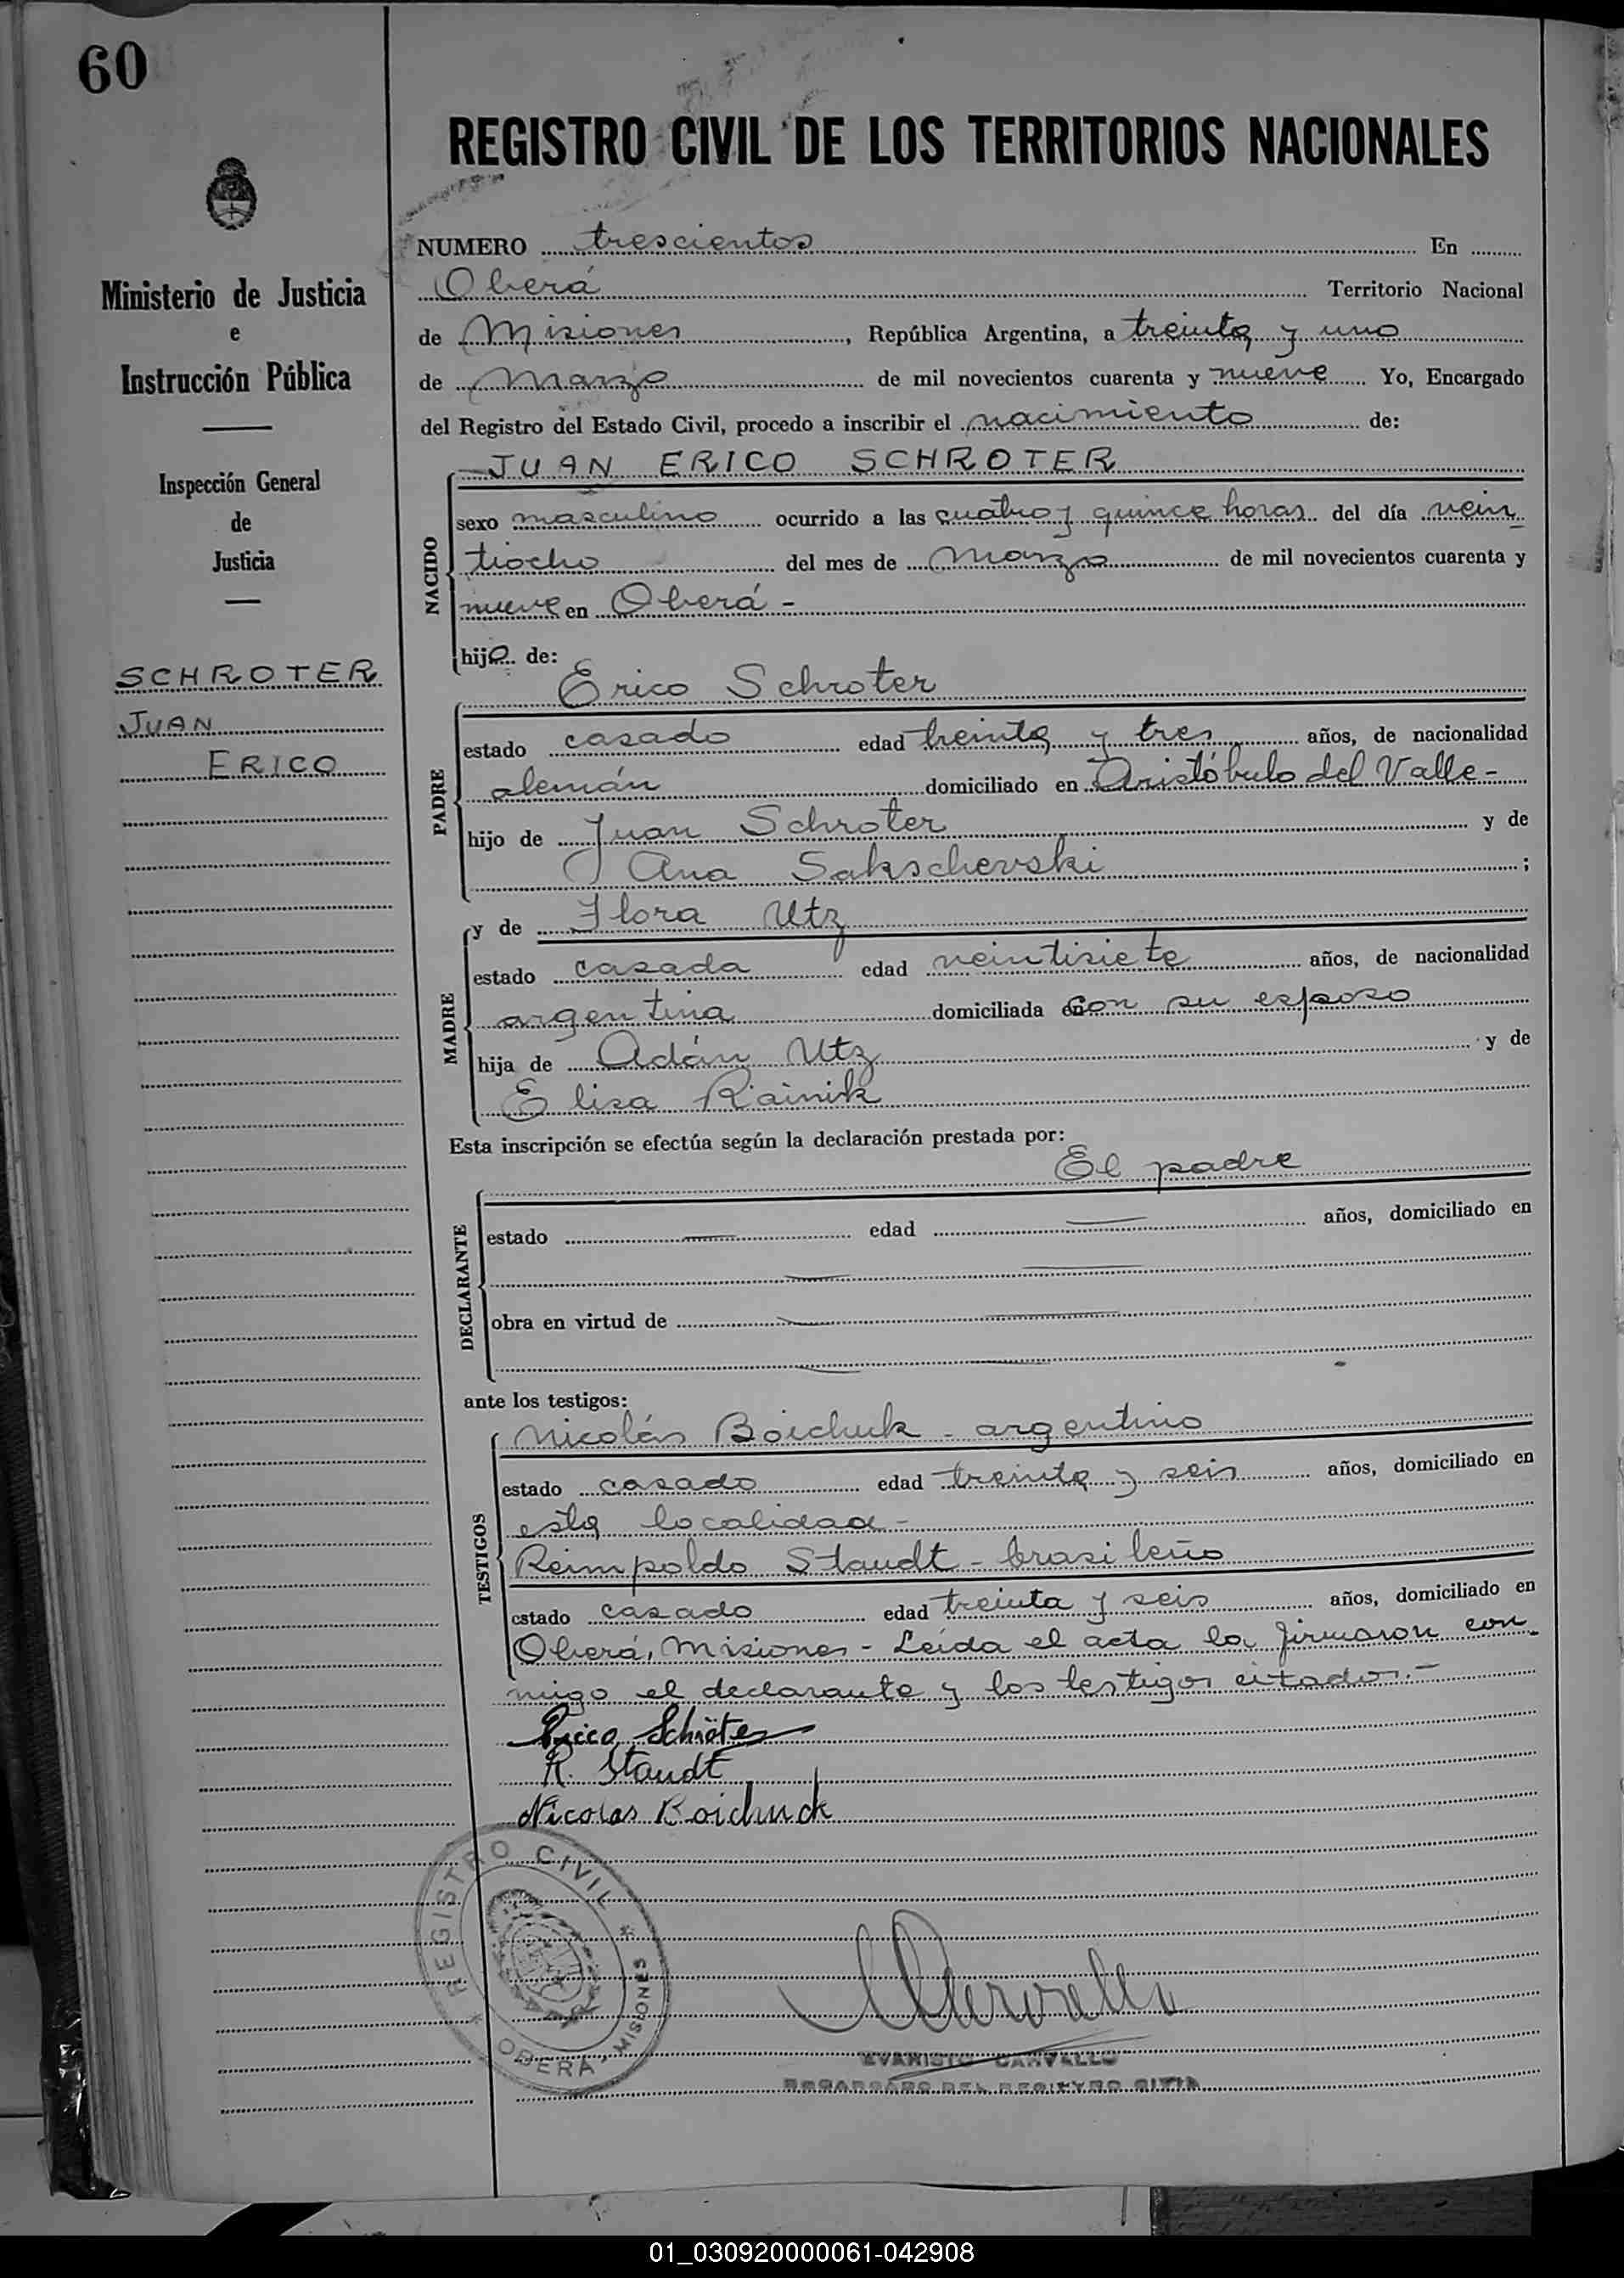 60
Ministerio de Justicia
e
Instrucción Pública
Inspección General
de
Justicia
SCHROTER
JUAN
ERICO
REGISTRO CIVIL DE LOS TERRITORIOS NACIONALES
NUMERO trescientos En
Oberá Territorio Nacional
de Misiones, República Argentina, a treinta y uno
de Marzo de mil novecientos cuarenta y nueve Yo, Encargado
del Registro del Estado Civil, procedo a inscribir el nacimiento de:
JUAN ERICO SCHROTER
NACIDO
sexo masculino ocurrido a las cuatro y quince horas del día vein
tiocho del mes de Marzo de mil novecientos cuarenta y
nueve en Oberá -
hijo de:
Erico Schroter
PADRE
estado casado edad treinta y tres años, de nacionalidad
alemán domiciliado en Aristóbulo del Valle -
hijo de Juan Schroter y de
Ana Sakschevski ;
y de Flora Utz
MADRE
estado casada edad veintisiete años, de nacionalidad
argentina domiciliada con su esposo
hija de Adán Utz y de
Elisa Rainik
Esta inscripción se efectúa según la declaración prestada por:
El padre
DECLARANTE
estado edad años, domiciliado en
obra en virtud de
ante los testigos:
Nicolás Boichuk - argentino
TESTIGOS
estado casado edad treinta y seis años, domiciliado en
esta localidad -
Reimpoldo Staudt - brasileño
estado casado edad treinta y seis años, domiciliado en
Oberá, Misiones - Leída el acta la firmaron con
migo el declarante y los testigos citados.-
Erico Schröter
R. Staudt
Nicolas Boichuck
REGISTRO CIVIL
OBERA - MISIONES
EVARISTO CARVALLO
ENCARGADO DEL REGISTRO CIVIL
01_030920000061-042908